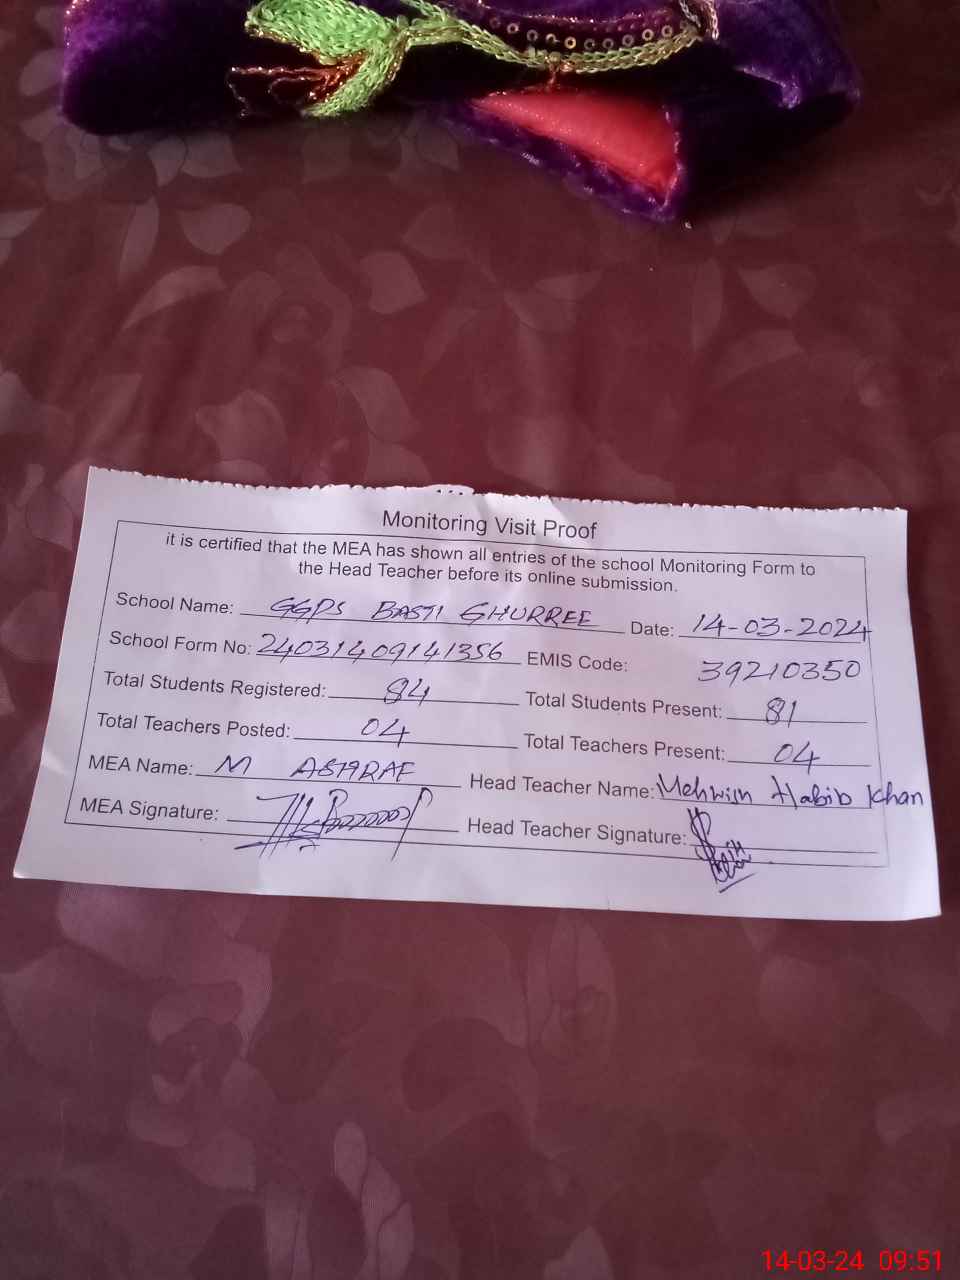 Monitoring Visit Proof
it is certified that the MEA has shown all entries of the school Monitoring Form to
the Head Teacher before its online submission.
School Name: GGPS BASTI GHURREE Date: 14-03-2024
School Form No: 24031409141356 EMIS Code: 39210350
Total Students Registered: 84 Total Students Present: 81
Total Teachers Posted: 04 Total Teachers Present: 04
MEA Name: M ASHRAF Head Teacher Name: Mehwish Habib Khan
MEA Signature: Head Teacher Signature:
14-03-24 09:51